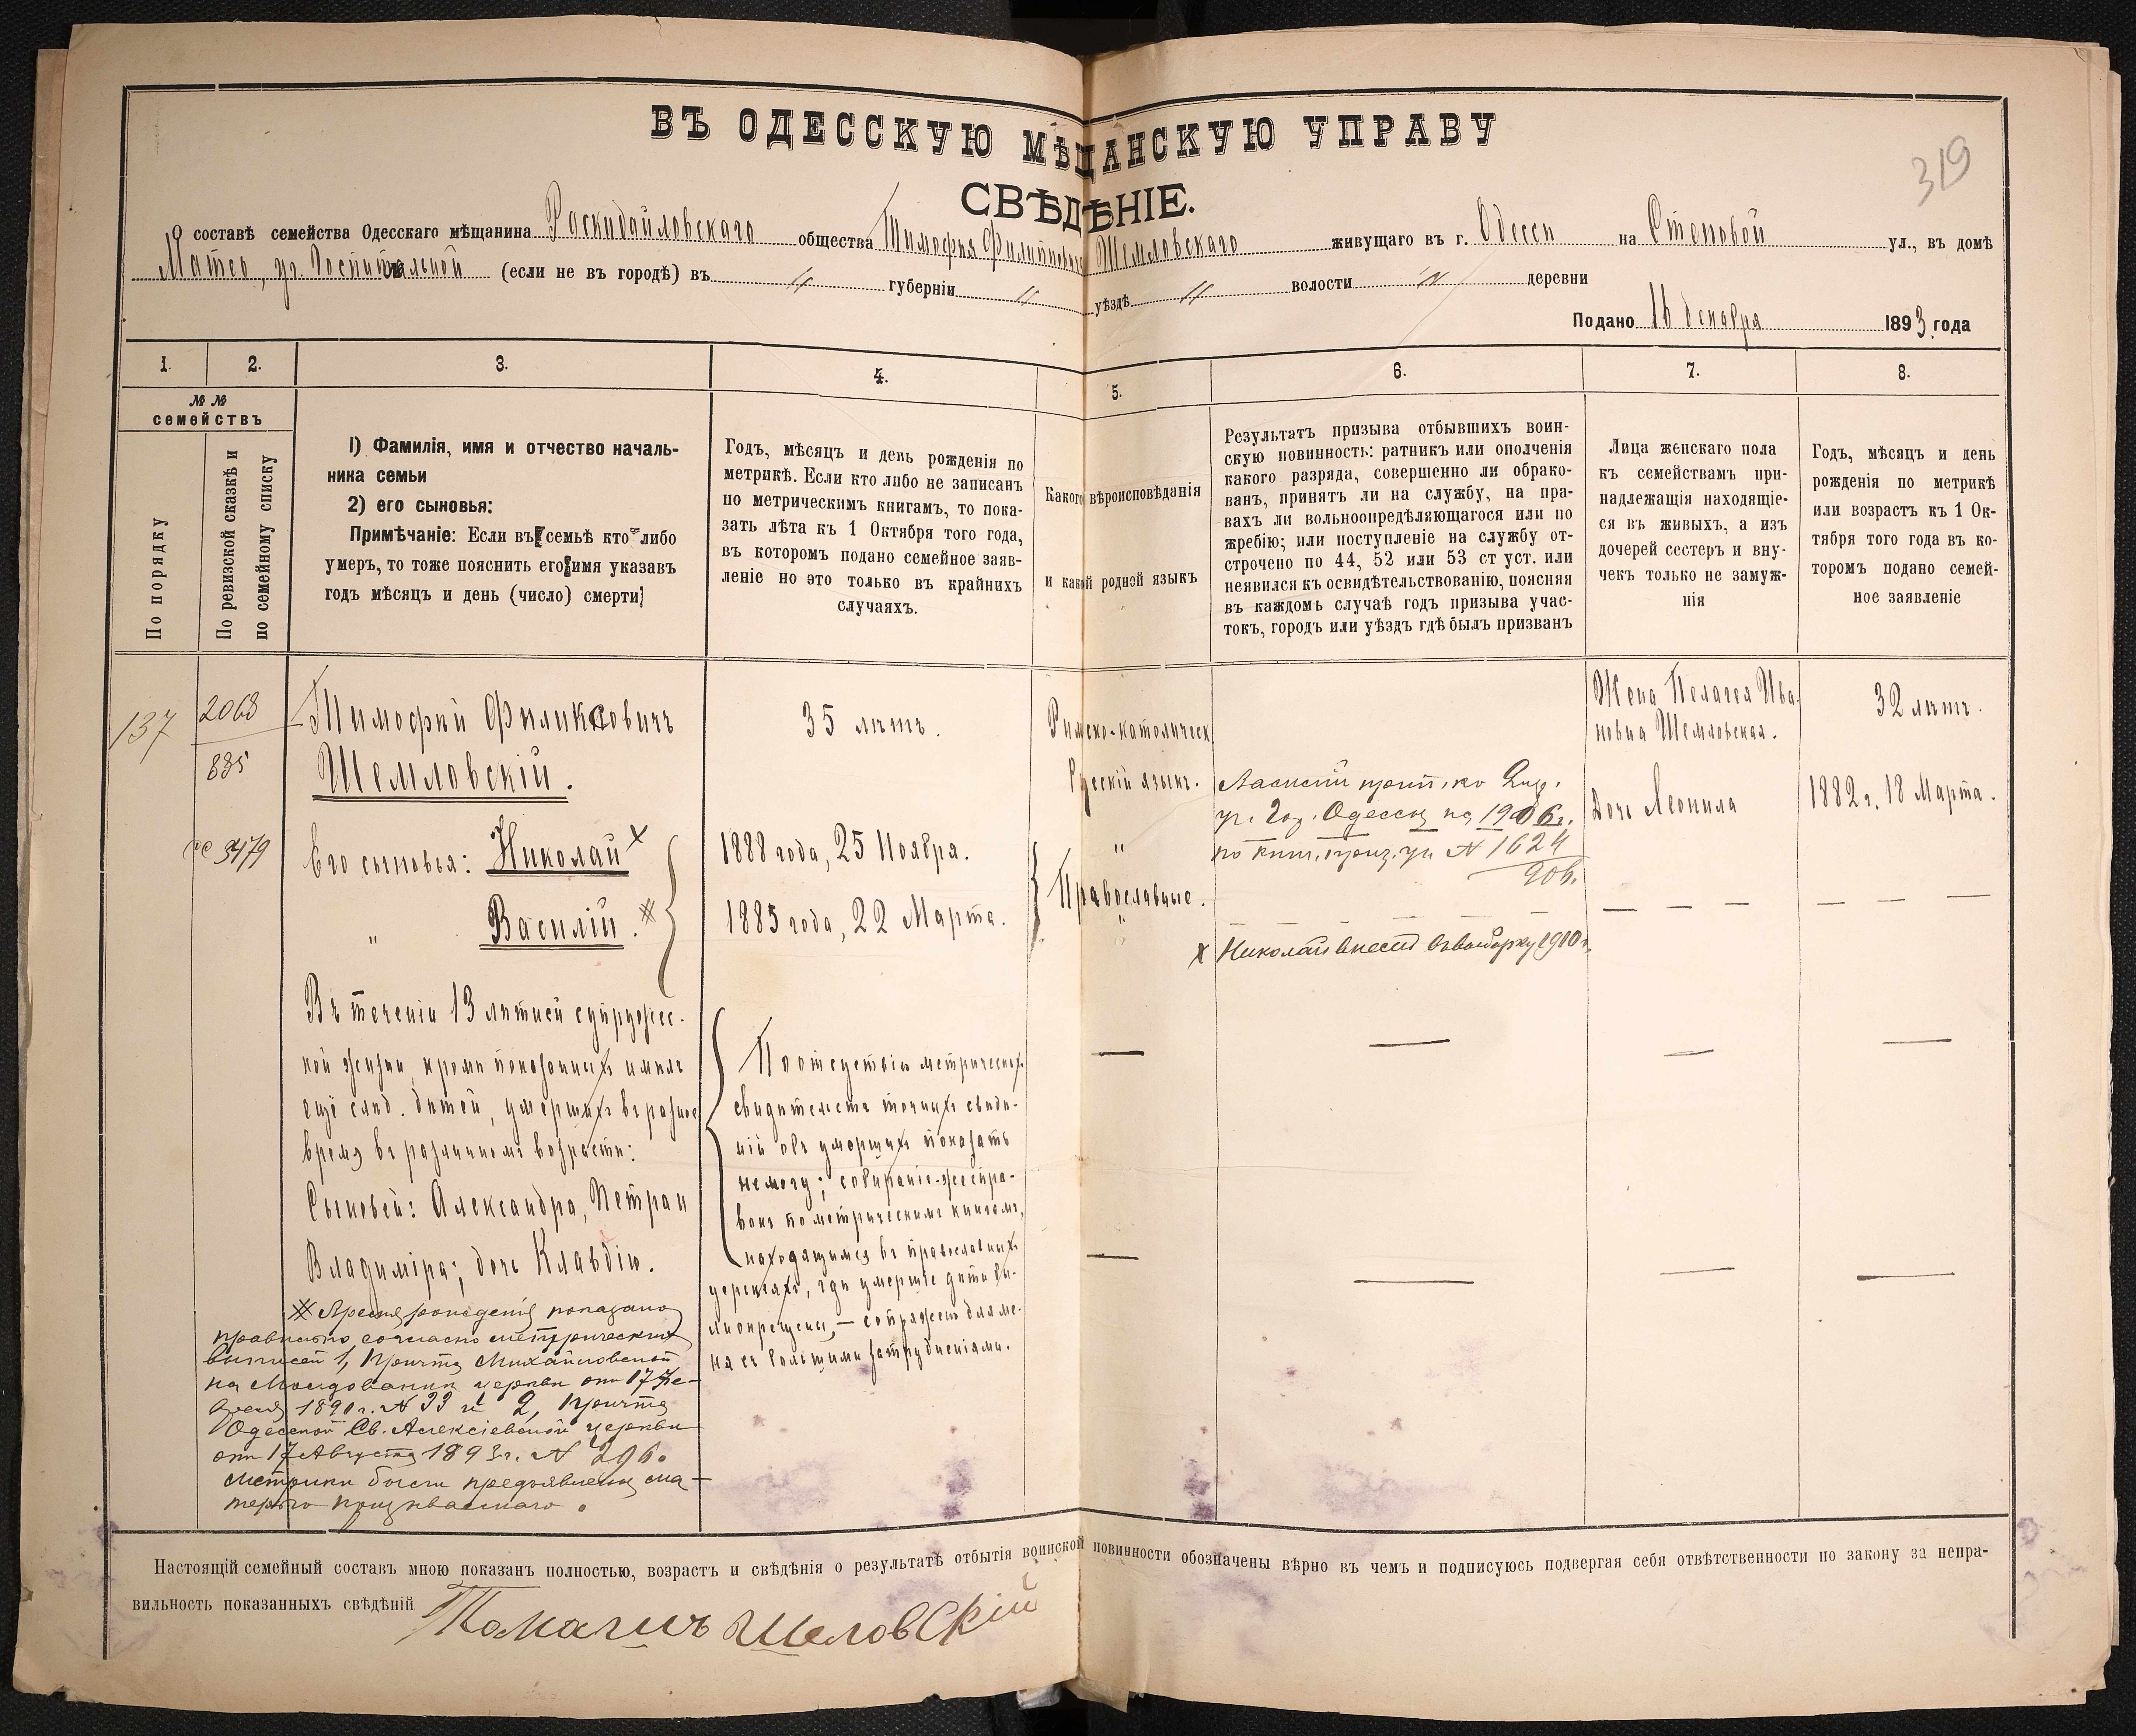 ВЪ ОДЕССКУЮ МѢЩАНСКУЮ УПРАВУ
319
СВѢДѢНІЕ.
О составѣ семейства Одесскаго мѣщанина Раскидайловскаго общества Тимофѣя Филиповича Шемловскаго живущаго въ г. Одессѣ на Степовой ул., въ домѣ
Матео, уг. Госпитальной (если не въ городѣ) въ " губерніи " уѣздѣ " волости " деревни
Подано 16 декабря 1893 года
1. 2. 3. 4. 5. 6. 7. 8.
№ № семействъ
По порядку
По ревизской сказкѣ и
по семейному списку
1) Фамилія, имя и отчество началь-
ника семьи
2) его сыновья:
Примѣчаніе: Если въ семьѣ кто либо
умеръ, то тоже пояснить его имя указавъ
годъ мѣсяцъ и день (число) смерти;
Годъ, мѣсяцъ и день рожденія по
метрикѣ. Если кто либо не записанъ
по метрическимъ книгамъ, то пока-
зать лѣта къ 1 Октября того года,
въ которомъ подано семейное заяв-
леніе но это только въ крайнихъ
случаяхъ.
Какого вѣроисповѣданія
и какой родной языкъ
Результатъ призыва отбывшихъ воин-
скую повинность: ратникъ или ополченія
какого разряда, совершенно ли обрако-
ванъ, принятъ ли на службу, на пра-
вахъ ли вольноопредѣляющагося или по
жребію; или поступленіе на службу от-
строчено по 44, 52 или 53 ст уст. или
неявился къ освидѣтельствованію, поясняя
въ каждомъ случаѣ годъ призыва учас-
токъ, городъ или уѣздъ гдѣ былъ призванъ
Лица женскаго пола
къ семействамъ при-
надлежащія находящіе-
ся въ живыхъ, а изъ
дочерей сестеръ и вну-
чекъ только не замуж-
нія
Годъ, мѣсяцъ и день
рожденія по метрикѣ
или возрастъ къ 1 Ок-
тября того года въ ко-
торомъ подано семей-
ное заявленіе
137
2068
885
3479
Тимофѣй Филиксовичъ
Шемловскій.
Его сыновья: Николай ×
" Василій.
Въ теченіи 13 лѣтней супружес-
кой жизни, кромѣ показанныхъ имѣлъ
ещё слѣд. дѣтей, умершихъ въ разное
время въ различномъ возрастѣ:
Сыновей: Александра, Петра и
Владиміра; дочь Клавдію.
Время рожденія показано
правильно, согласно метрическихъ
выписей 1, Причта Михайловской
на Молдованкѣ церкви отъ 17 Фе-
враля 1890 г. № 33 и 2, Причта
Одесской Св. Алексіевской церкви
отъ 17 Августа 1893 г. № 296.
Метрики были предъявлены ма-
терью призываемаго.
35 лѣтъ.
1888 года, 25 Ноября.
1885 года, 22 Марта.
По отсутствію метрическихъ
свидѣтельствъ точныхъ свѣдѣ-
ній объ умершихъ показать
не могу; собираніе же спра-
вокъ по метрическимъ книгамъ,
находящимся въ православныхъ
церквахъ, гдѣ умершіе дѣти бы-
ли окрещены, — сопряжено для ме-
ня съ большими затрудненіями.
Римско-католическ
Русскій языкъ.
"
Православные.
"
Василій
гор. Одессы на 1906 г.
по № 1624
906.
× Николай внесенъ въ выборку 1910 г.
Жена Пелагея Ива-
новна Шемловская.
Дочь Леонила
32 лѣтъ.
1882 г. 18 Марта.
Настоящій семейный составъ мною показанъ полностью, возрастъ и свѣдѣнія о результатѣ отбытія воинской повинности обозначены вѣрно въ чемъ и подписуюсь подвергая себя отвѣтственности по закону за непра-
вильность показанныхъ свѣдѣній
Шеловскій